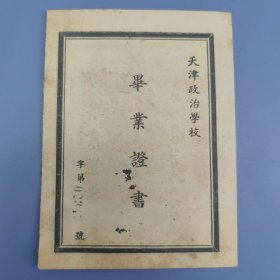 天津政治學校
畢業證書
字第 號